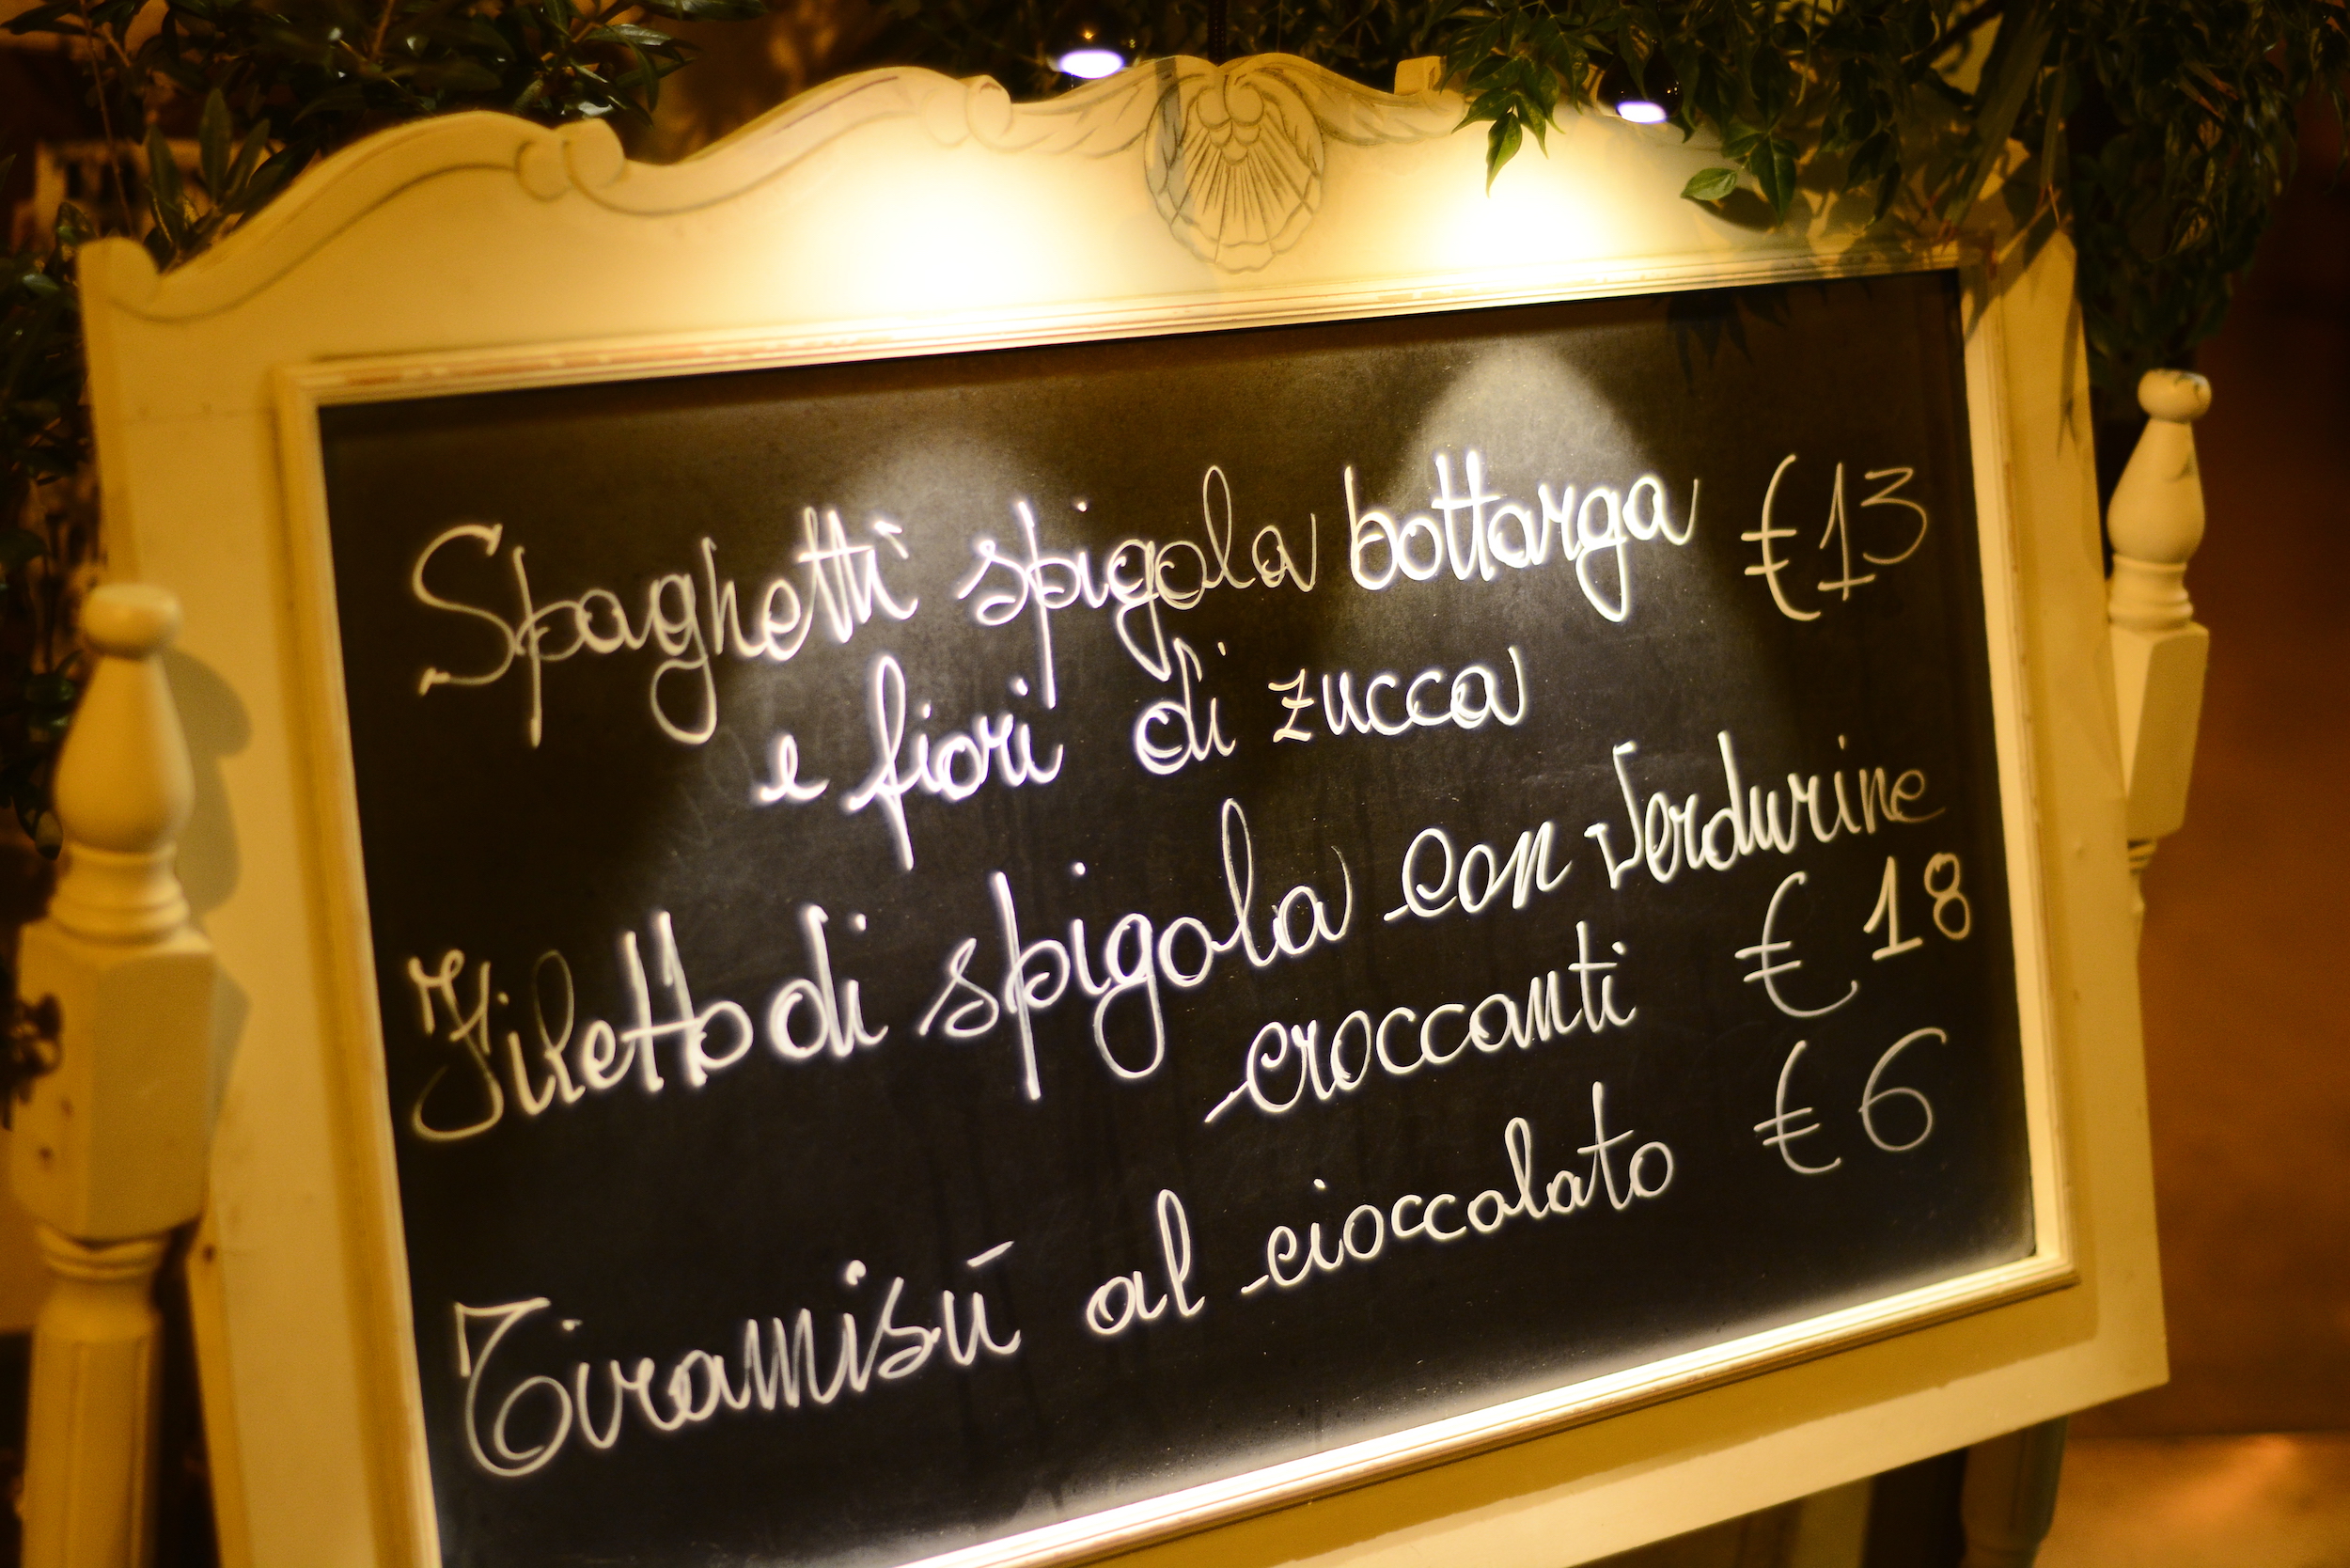 Spaghetti spigola bottarga €13
e fiori di zucca
Filetto di spigola con verdurine
croccanti € 18
Tiramisù al cioccolato € 6